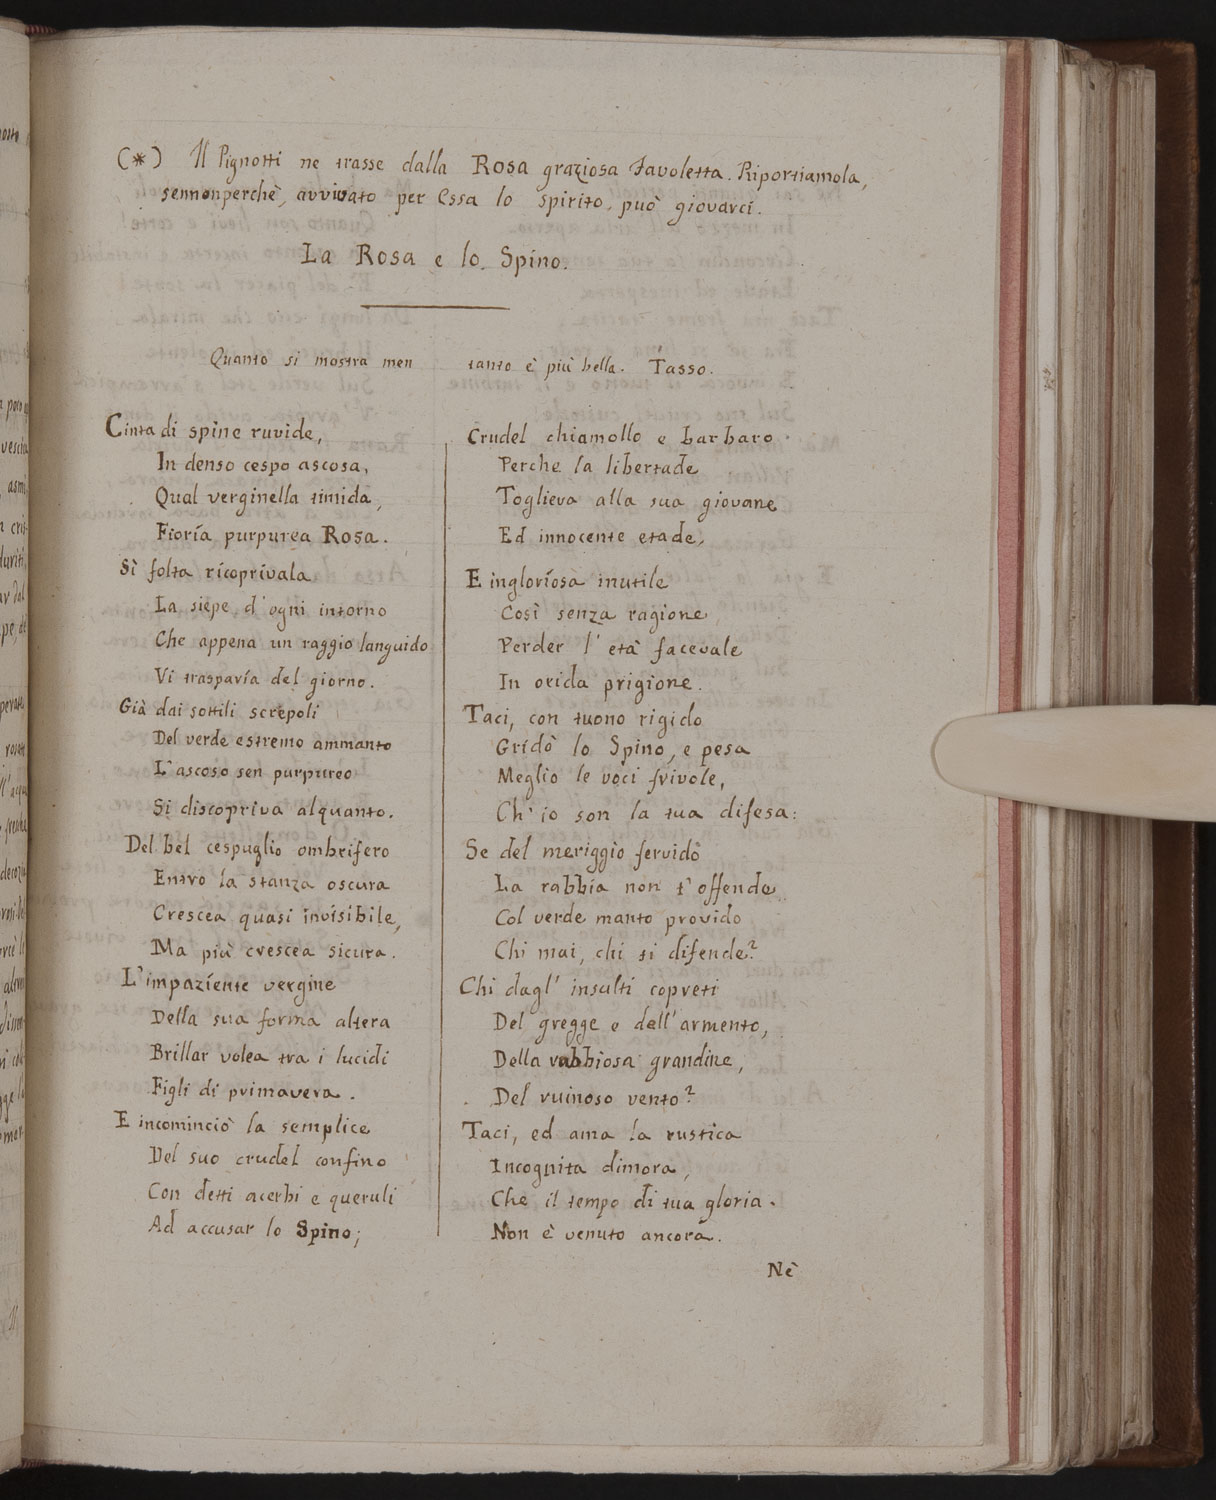 (*) Il Pignotti ne trasse dalla Rosa graziosa Favoletta. Riportiamola,
sennonperchè, avvivato per Essa lo spirito, può giovarci.
La Rosa e lo Spino.
Quanto si mostra men tanto è più bella. Tasso.
Cinta di spine ruvide,
In denso cespo ascosa,
Qual verginella timida,
Fioría purpurea Rosa.
Sì folta ricoprivala
La siepe d'ogni intorno
Che appena un raggio languido
Vi trasparía del giorno.
Già dai sottili screpoli
Del verde estremo ammanto
L'ascoso sen purpureo
Si discopriva alquanto.
Del bel cespuglio ombrifero
Entro la stanza oscura
Crescea quasi invisibile,
Ma più crescea sicura.
L'impaziente vergine
Della sua forma altera
Brillar volea tra i lucidi
Figli di primavera.
E incominciò la semplice
Del suo crudel confino
Con detti acerbi e queruli
Ad accusar lo Spino;
Crudel chiamollo e barbaro
Perche la libertade
Toglieva alla sua giovane
Ed innocente etade,
E ingloriosa inutile
Così senza ragione
Perder l'età facevale
In orida prigione.
Taci, con tuono rigido
Gridò lo Spino, e pesa
Meglio le voci frivole,
Ch'io son la tua difesa:
Se del meriggio fervido
La rabbia non t'offende
Col verde manto provido
Chi mai, chi ti difende?
Chi dagl' insulti copreti
Del gregge e dell'armento,
Della rabbiosa grandine,
Del ruinoso vento?
Taci, ed ama la rustica
Incognita dimora,
Che il tempo di tua gloria
Non è venuto ancora.
Nè